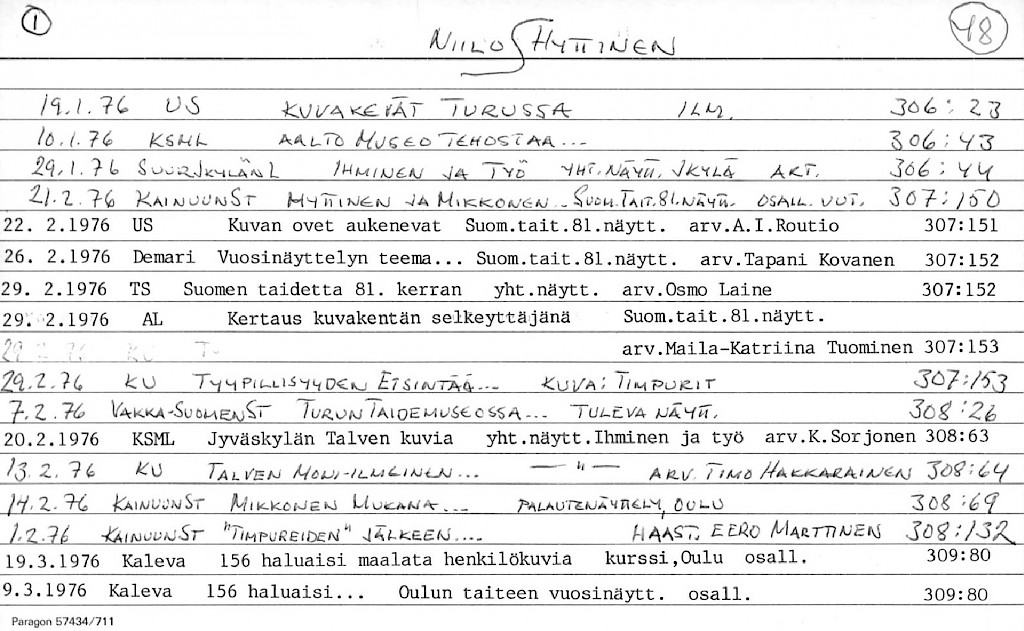 1 NIILO HYTTINEN 48
19.1.76 US KUVAKEVÄT TURUSSA ILM. 306:23
10.1.76 KSML AALTO MUSEO TEHOSTAA... 306:43
29.1.76 SUURJKYLÄNL IHMINEN JA TYÖ YHT.NÄYTT. JKYLÄ ART. 306:44
21.2.76 KAINUUNST HYTTINEN JA MIKKONEN.. SUOM.TAIT.81.NÄYTT. OSALL. UUT. 307:150
22. 2.1976 US Kuvan ovet aukenevat Suom.tait.81.näytt. arv.A.I.Routio 307:151
26. 2.1976 Demari Vuosinäyttelyn teema... Suom.tait.81.näytt. arv.Tapani Kovanen 307:152
29. 2.1976 TS Suomen taidetta 81. kerran yht.näytt. arv.Osmo Laine 307:152
29. 2.1976 AL Kertaus kuvakentän selkeyttäjänä Suom.tait.81.näytt.
arv.Maila-Katriina Tuominen 307:153
29.2.76 KU TYYPILLISYYDEN ETSINTÄÄ... KUVA: TIMPURIT 307:153
7.2.76 VAKKA-SUOMENST TURUN TAIDEMUSEOSSA... TULEVA NÄYTT. 308:26
20.2.1976 KSML Jyväskylän Talven kuvia yht.näytt.Ihminen ja työ arv.K.Sorjonen 308:63
13.2.76 KU TALVEN MONI-ILMEINEN... — " — ARV. TIMO HAKKARAINEN 308:64
14.2.76 KAINUUNST MIKKONEN MUKANA... PALAUTENÄYTTELY, OULU 308:69
1.2.76 KAINUUNST "TIMPUREIDEN" JÄLKEEN.... HAAST. EERO MARTTINEN 308:132
19.3.1976 Kaleva 156 haluaisi maalata henkilökuvia kurssi,Oulu osall. 309:80
9.3.1976 Kaleva 156 haluaisi... Oulun taiteen vuosinäytt. osall. 309:80
Paragon 57434/711